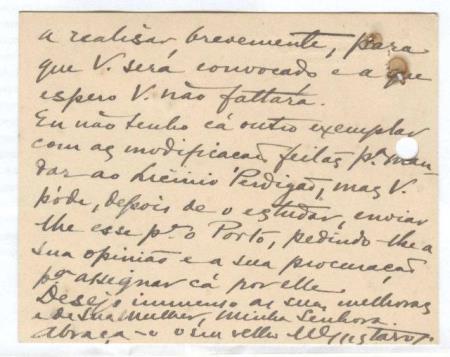 a realisar, brevemente, para
que V. será convocado e a que
espero V. não faltará.
Eu não tenho cá outro exemplar
com as modificações feitas pª man-
dar ao Licinio Perdigão, mas V.
póde, depois de o estudar, enviar
lhe esse pª o Porto, pedindo-lhe a
sua opinião e a sua procuração
pª assignar cá por elle.
Desejo immenso as suas melhoras
e de sua mulher, minha Senhora.
Abraça-o o seu velho